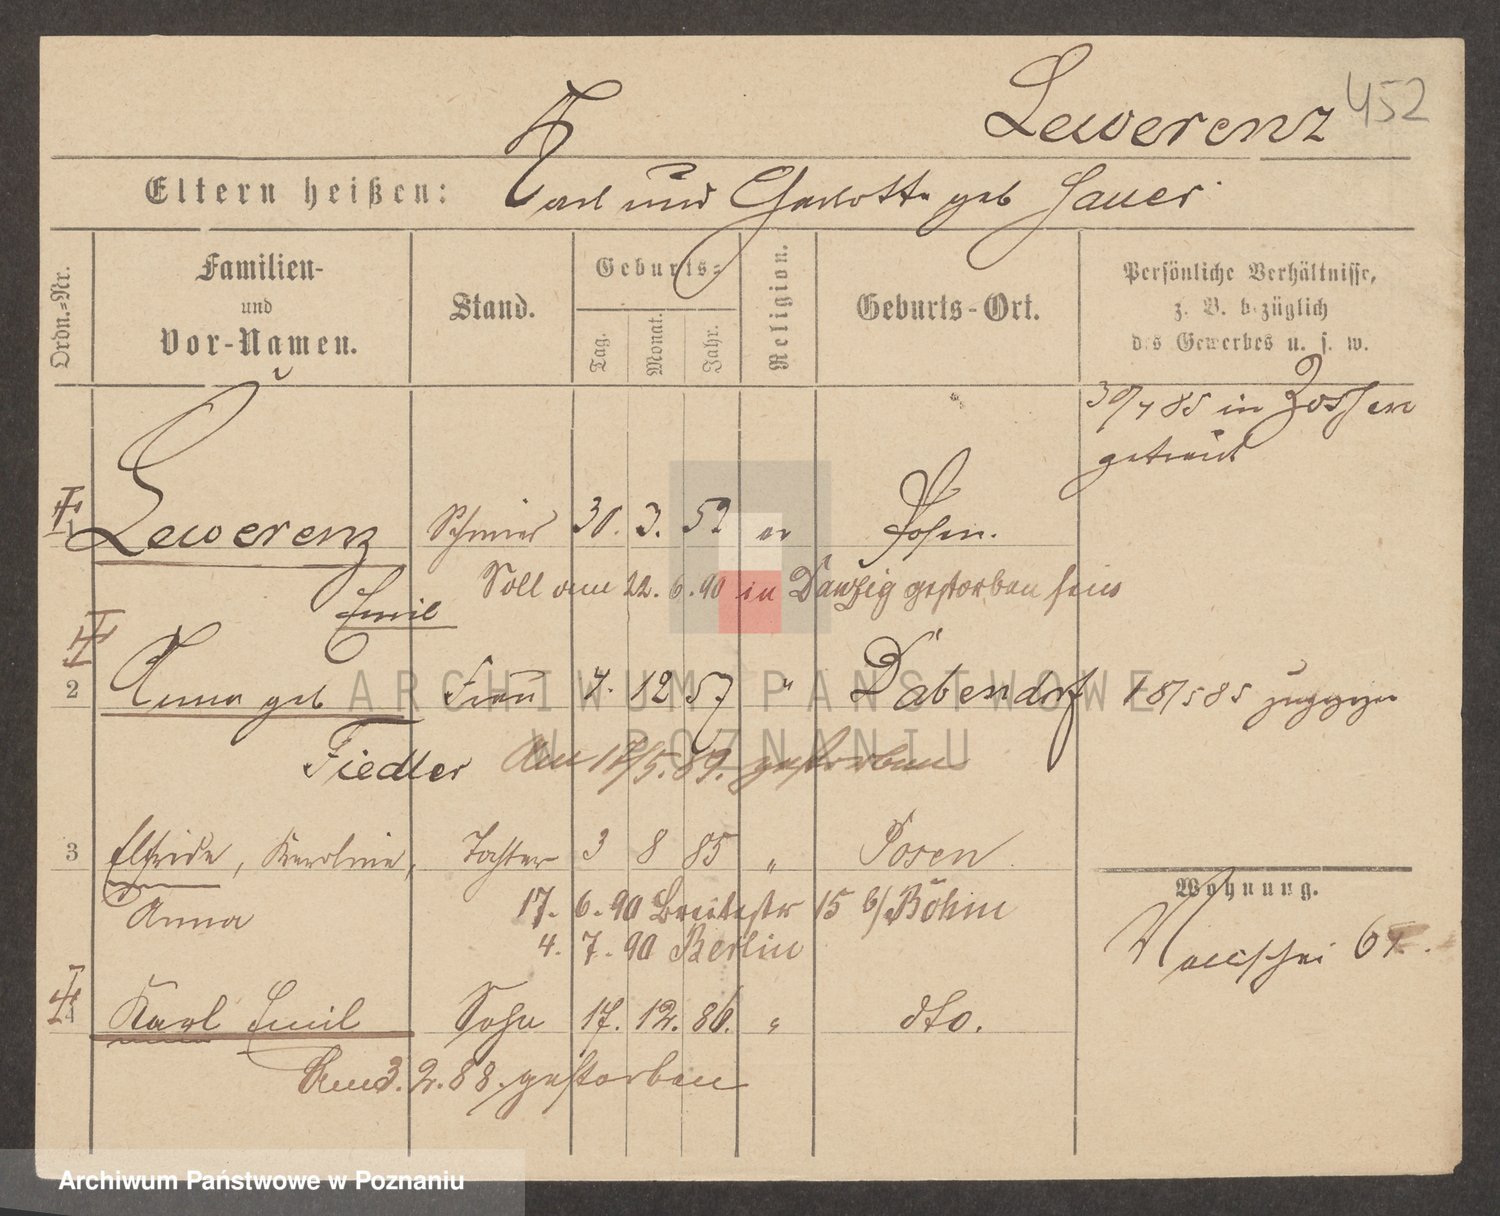 Lewerenz 452
Eltern heißen: Karl und Charlotte geb Sauer
Ordn.=Nr.
Familien-
und
Vor-Namen.
Stand.
Geburts=
Tag.
Monat.
Jahr.
Religion.
Geburts-Ort.
Persönliche Verhältnisse,
z. B. bezüglich
des Gewerbes u. s. w.
30/4 85 in Zossen
getraut
1 Lewerenz 30. 3. 52
Emil Soll am 22. 6. 90 in Danzig gestorben sein
2 Anna geb Frau 4. 12 57 " Dabendorf 18/5 85 zugezogen
Fiedler Am 18/5. 89. gestorben
3 Elfride, Karoline, Tochter 3 8 85 " Posen
Anna 17. 6. 90 Breitestr 15 b/ Böhm
4. 7. 90 Berlin
Wohnung.
Wallischei
4 Karl Emil Sohn 17. 12. 86. " dto.
Am 3. 2. 88. gestorben
ARCHIWUM PAŃSTWOWE
W POZNANIU
Archiwum Państwowe w Poznaniu